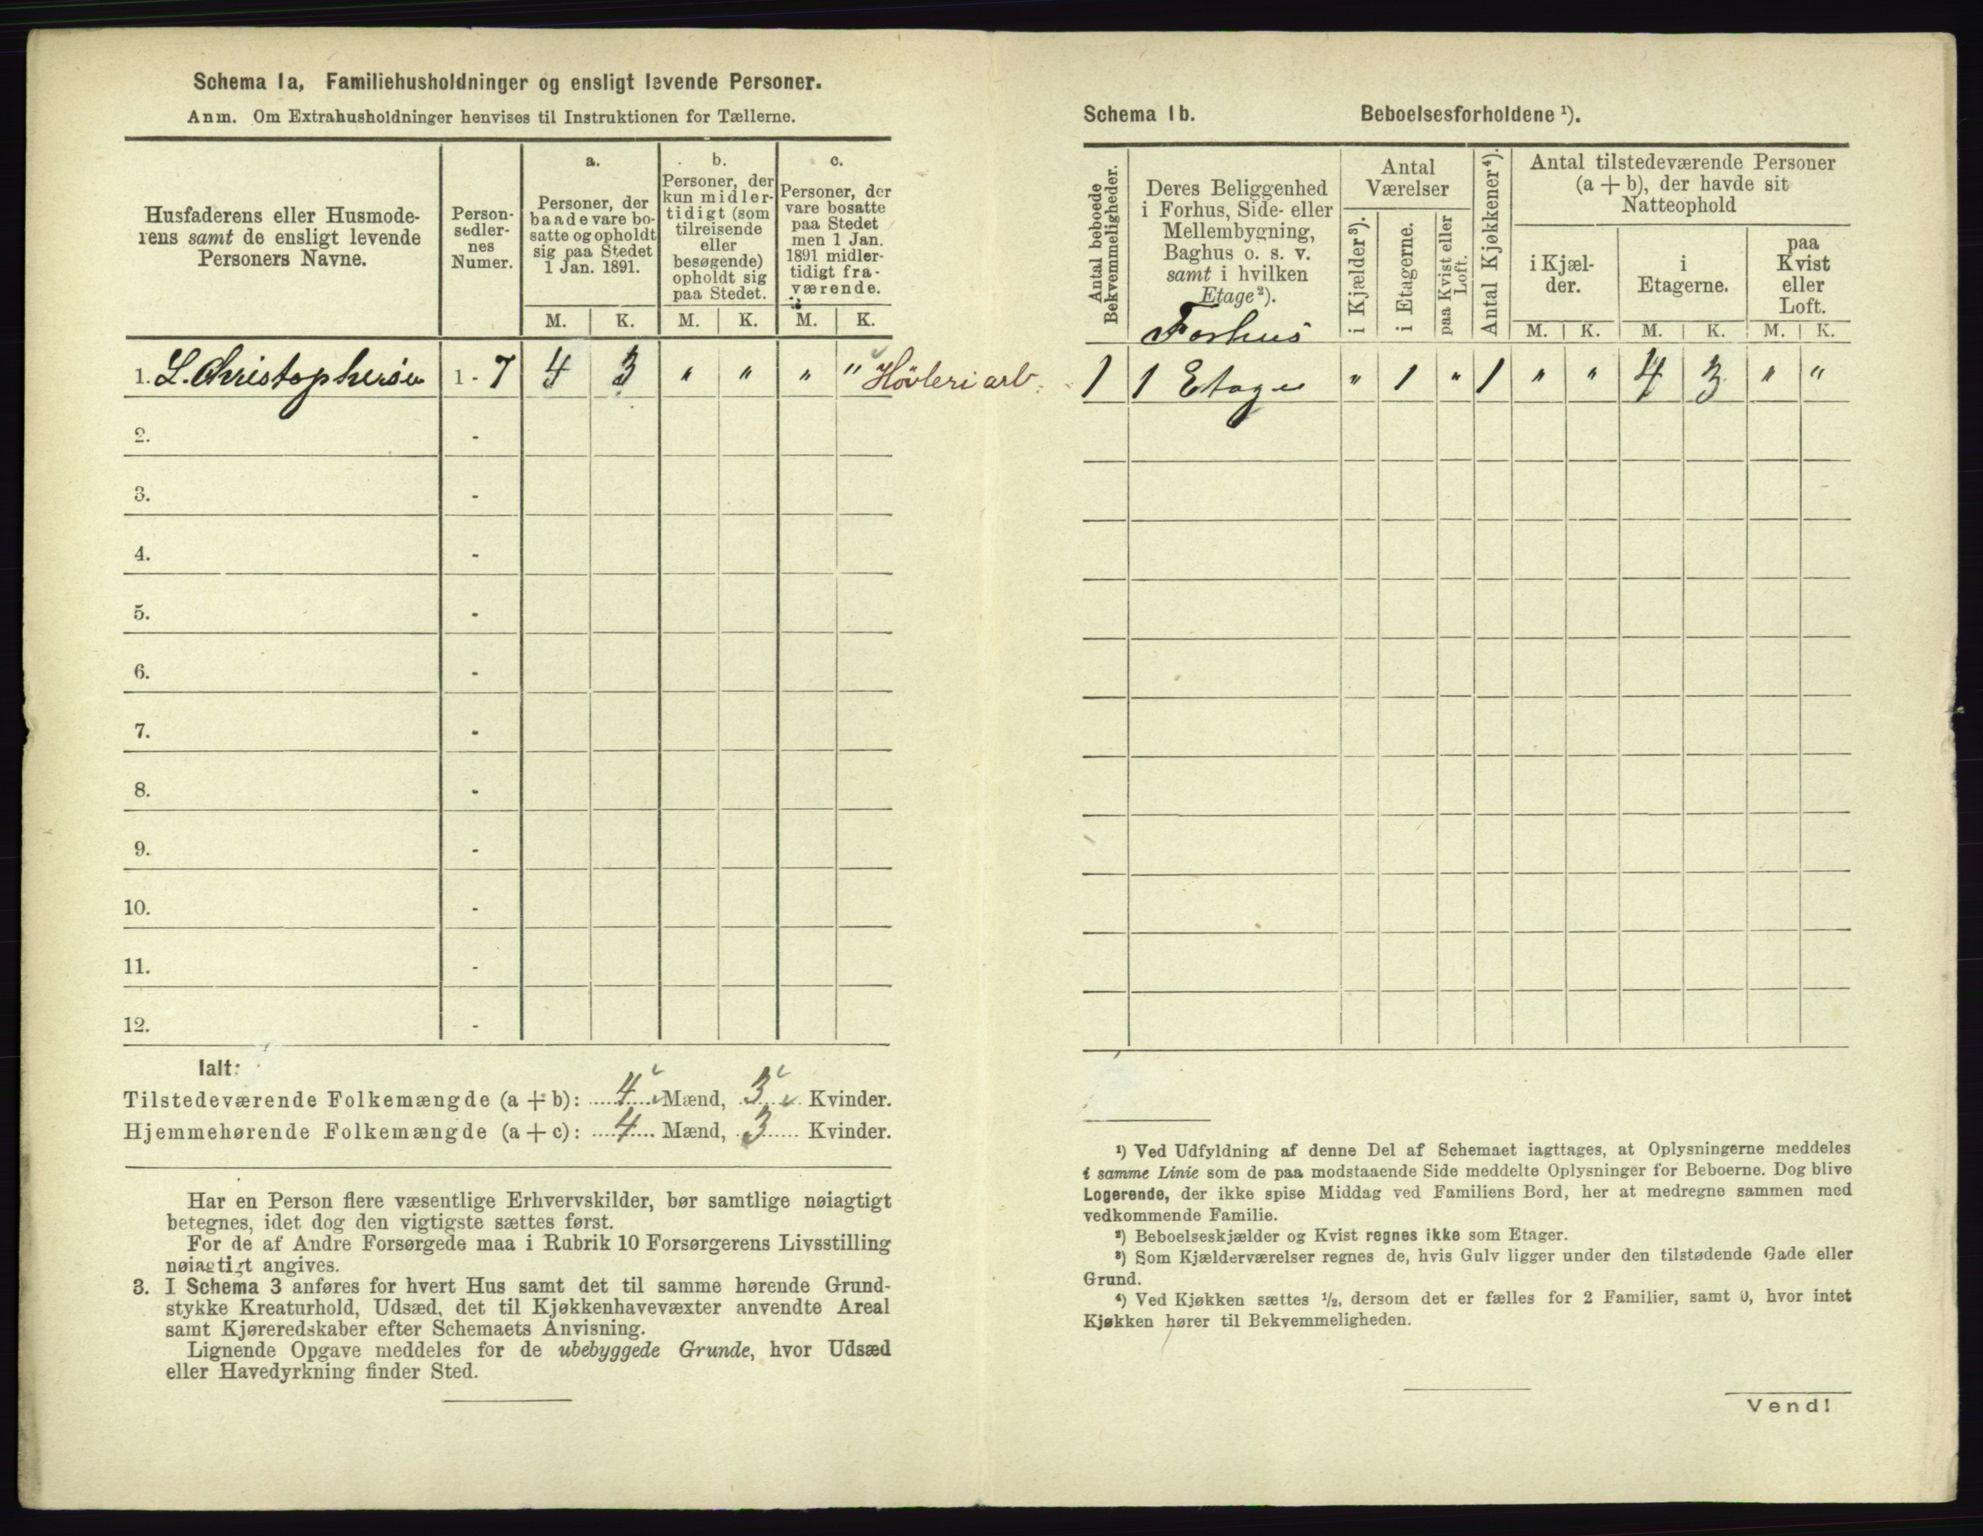 Schema 1a, Familiehusholdninger og ensligt levende Personer.
Anm. Om Extrahusholdninger henvises til Instruktionen for Tællerne.
Husfaderens eller Husmode-
rens samt de ensligt levende
Personers Navne.
Person-
sedler-
nes
Numer.
a.
Personer, der
baade vare bo-
satte og opholdt
sig paa Stedet
1 Jan. 1891.
b.
Personer, der
kun midler-
tidigt (som
tilreisende
eller
besøgende)
opholdt sig
paa Stedet.
c.
Personer, der
vare bosatte
paa Stedet
men 1 Jan.
1891 midler-
tidigt fra-
værende.
M. K. M. K. M. K.
1. L. Christophersen 1 - 7 4 3 " " " " Høvleriarb.
2. -
3. -
4. -
5. -
6. -
7. -
8. -
9. -
10. -
11. -
12. -
Ialt:
Tilstedeværende Folkemængde (a + b): 4 Mænd, 3 Kvinder.
Hjemmehørende Folkemængde (a + c): 4 Mænd, 3 Kvinder.
Har en Person flere væsentlige Erhvervskilder, bør samtlige nøiagtigt
betegnes, idet dog den vigtigste sættes først.
For de af Andre Forsørgede maa i Rubrik 10 Forsørgerens Livsstilling
nøiagtigt angives.
3. I Schema 3 anføres for hvert Hus samt det til samme hørende Grund-
stykke Kreaturhold, Udsæd, det til Kjøkkenhavevæxter anvendte Areal
samt Kjøreredskaber efter Schemaets Anvisning.
Lignende Opgave meddeles for de ubebyggede Grunde, hvor Udsæd
eller Havedyrkning finder Sted.
Schema 1b. Beboelsesforholdene ¹).
Antal beboede
Bekvemmeligheder.
Deres Beliggenhed
i Forhus, Side- eller
Mellembygning,
Baghus o. s. v.
samt i hvilken
Etage²).
Antal
Værelser
i Kjælder³).
i Etagerne.
paa Kvist eller
Loft.
Antal Kjøkkener⁴).
Antal tilstedeværende Personer
(a + b), der havde sit
Natteophold
i Kjæl-
der.
i
Etagerne.
paa
Kvist
eller
Loft.
M. K. M. K. M. K.
Forhus
1 1 Etage " 1 " 1 " " 4 3 " "
¹) Ved Udfyldning af denne Del af Schemaet iagttages, at Oplysningerne meddeles
i samme Linie som de paa modstaaende Side meddelte Oplysninger for Beboerne. Dog blive
Logerende, der ikke spise Middag ved Familiens Bord, her at medregne sammen med
vedkommende Familie.
²) Beboelseskjælder og Kvist regnes ikke som Etager.
³) Som Kjælderværelser regnes de, hvis Gulv ligger under den tilstødende Gade eller
Grund.
⁴) Ved Kjøkken sættes ½, dersom det er fælles for 2 Familier, samt 0, hvor intet
Kjøkken hører til Bekvemmeligheden.
Vend!